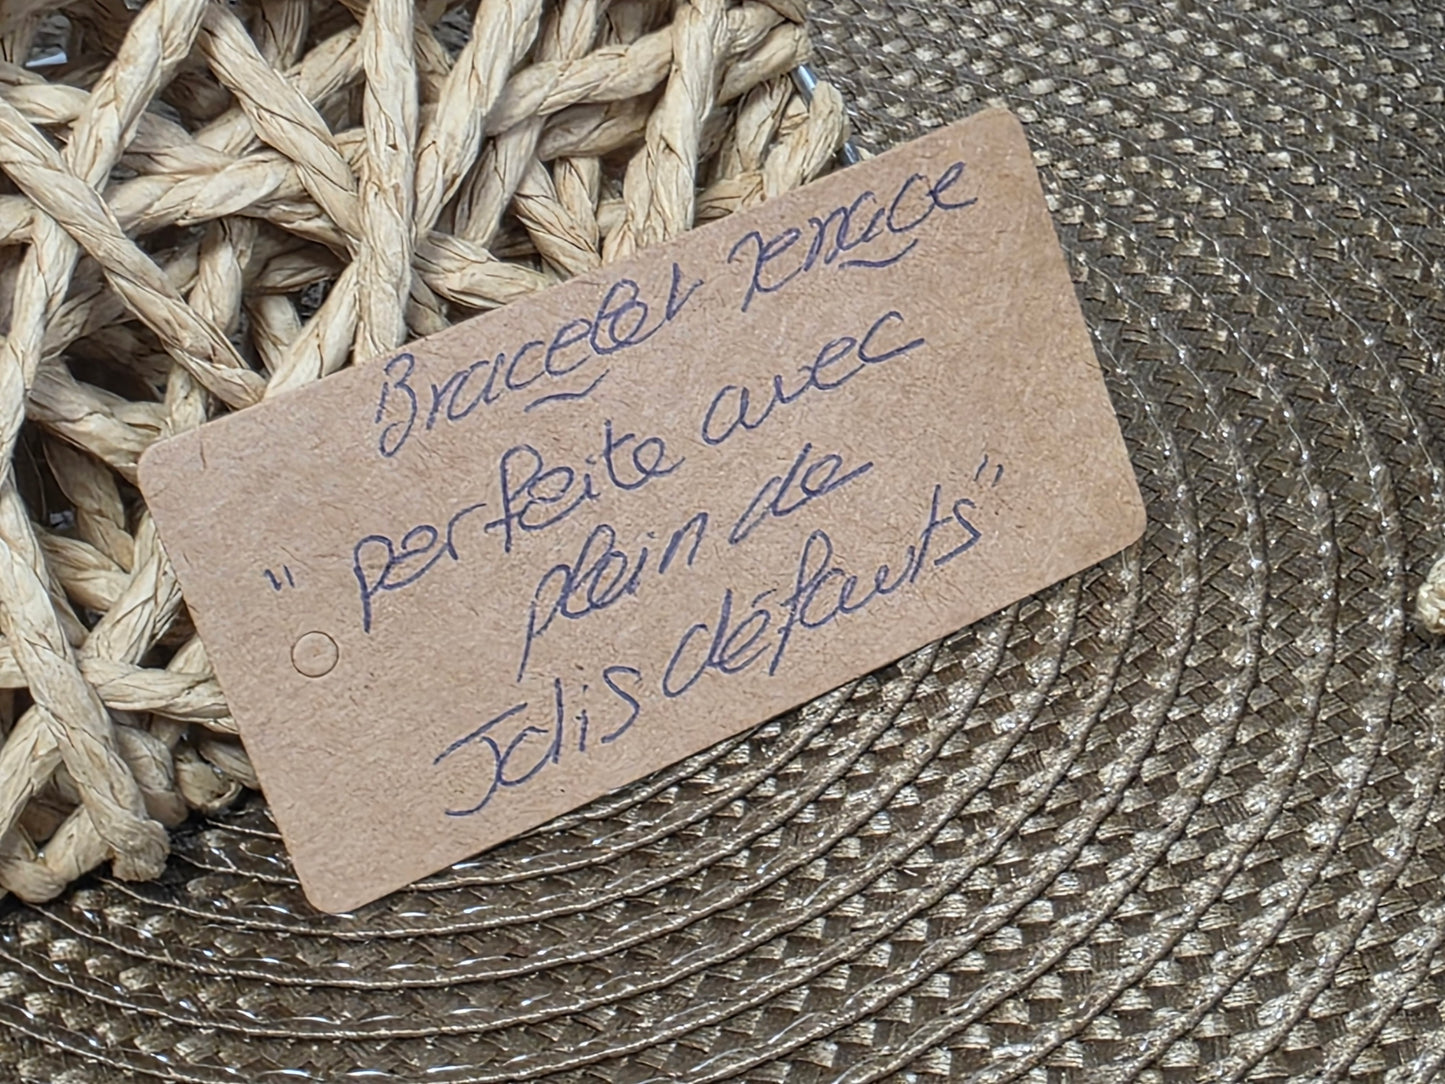 Bracelet Renace
" perfeite avec
plein de
Jolis défauts "